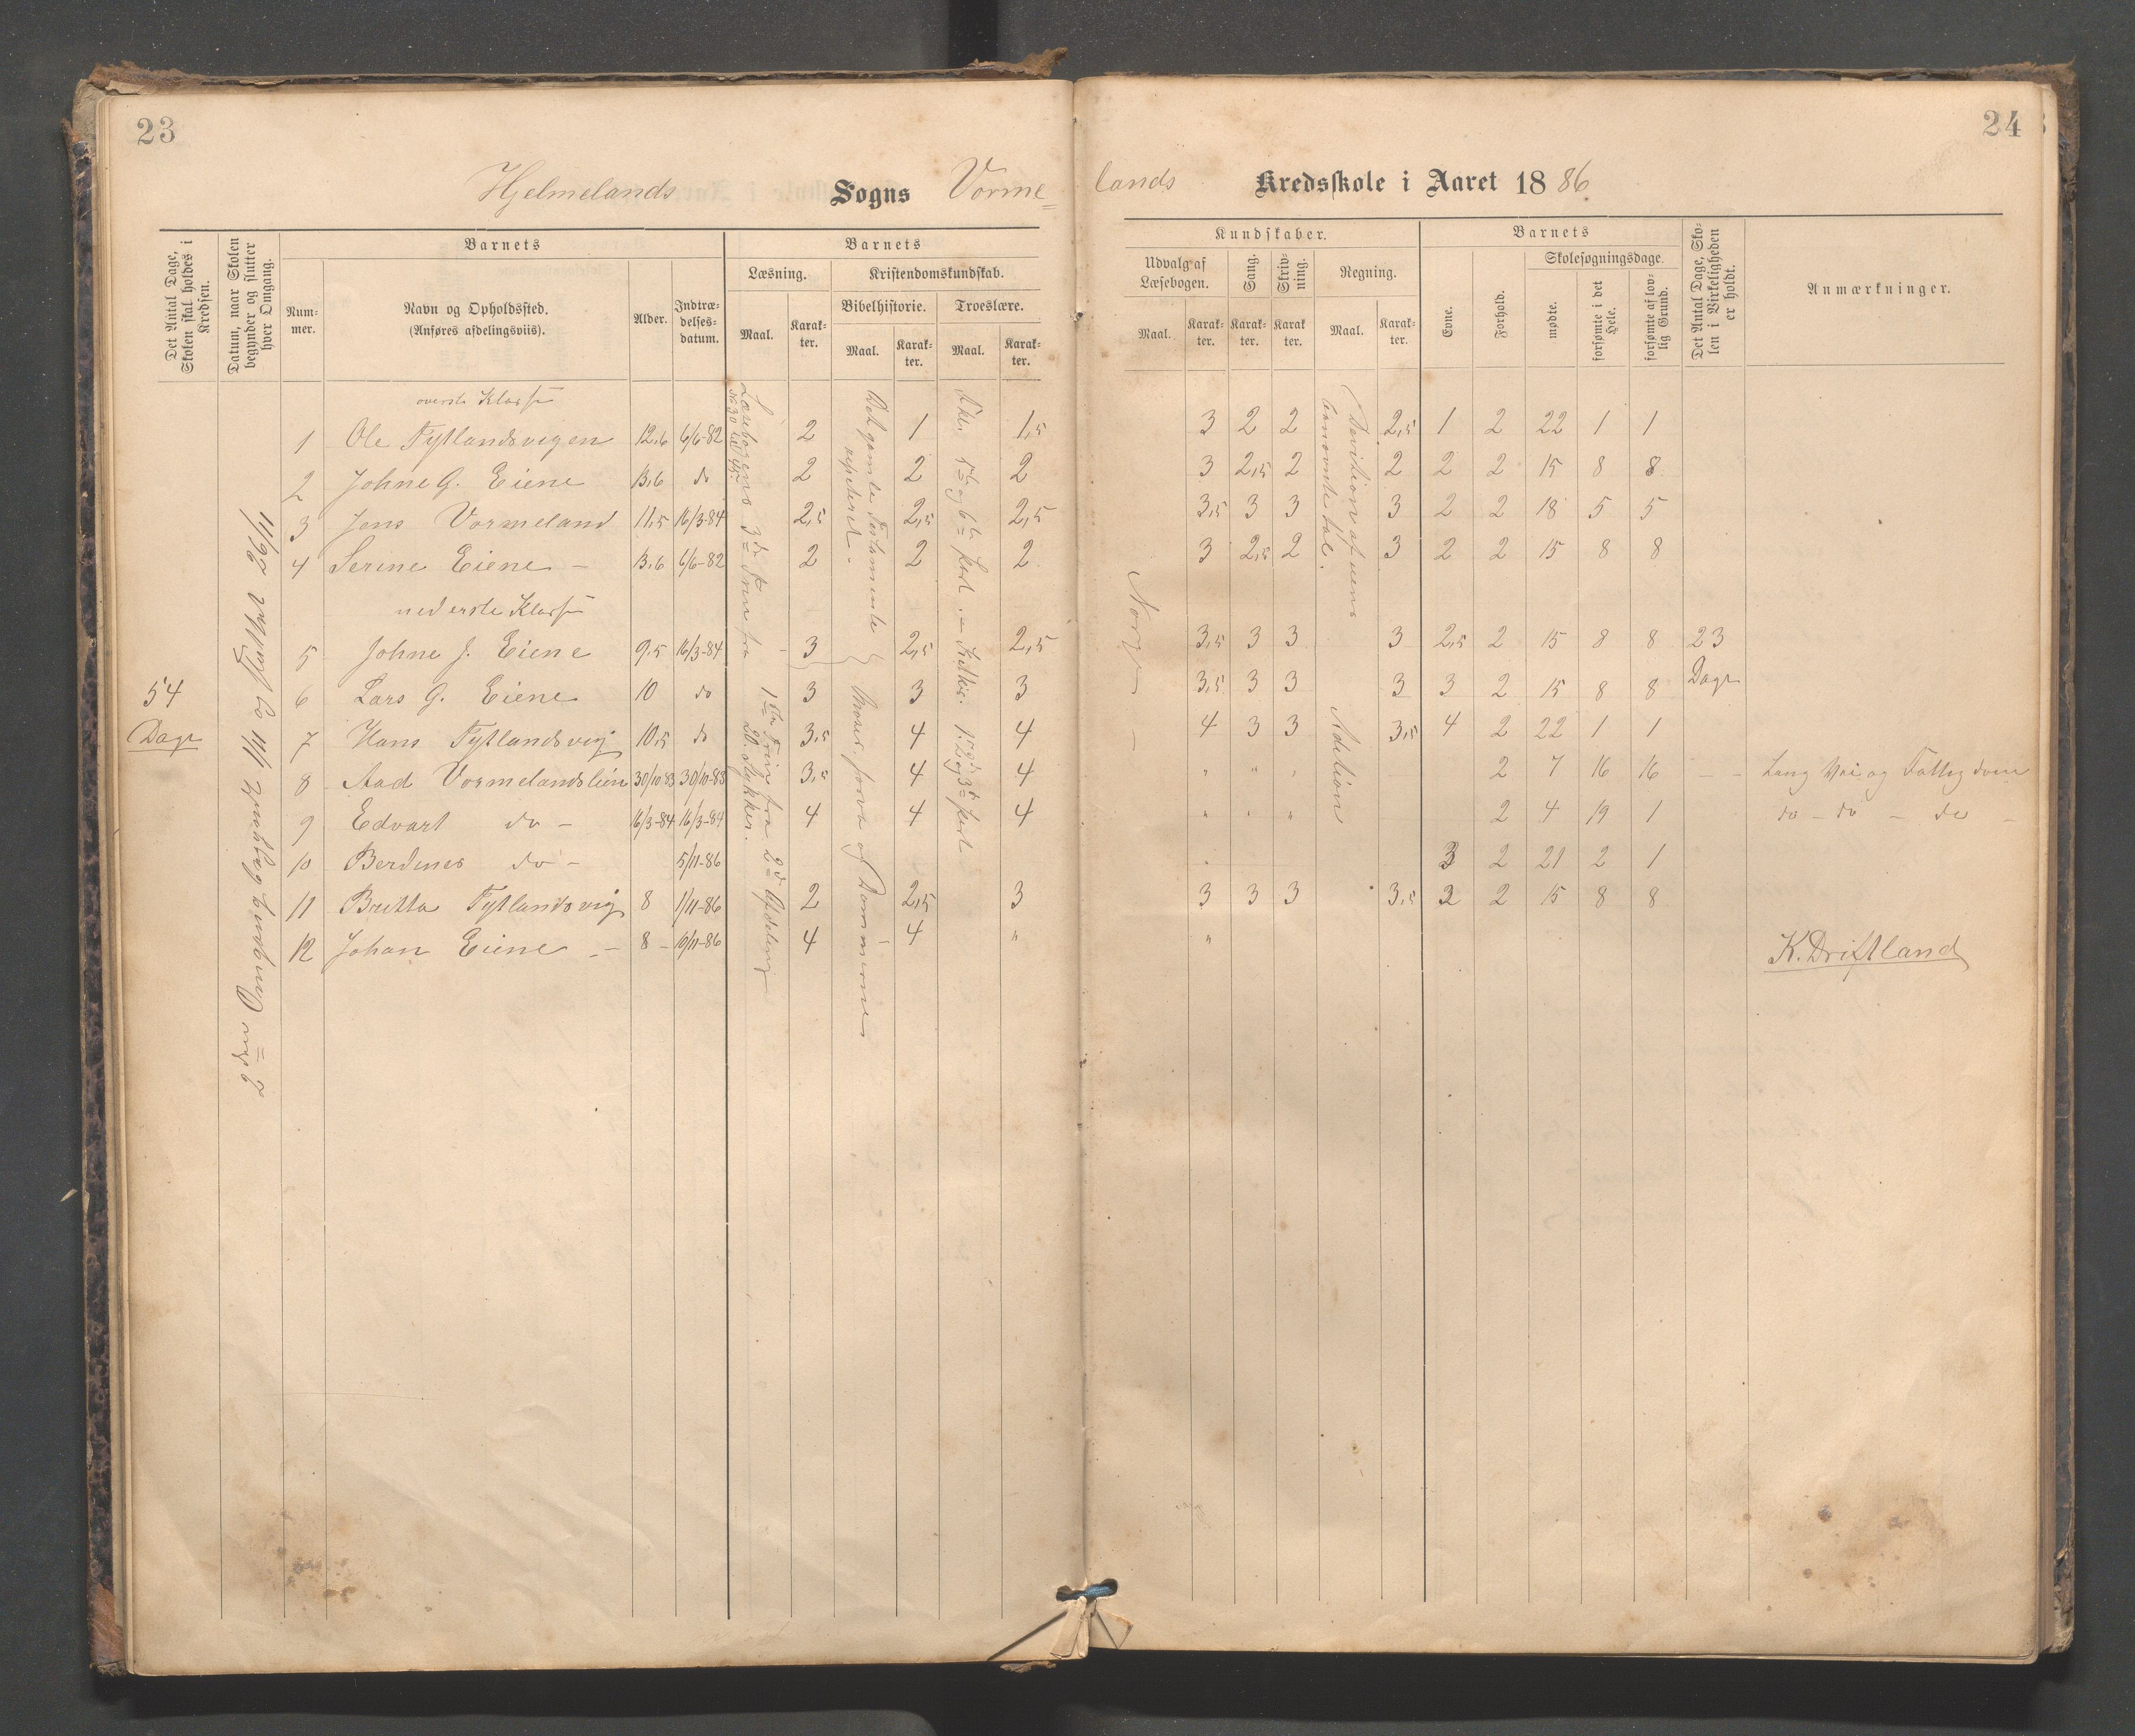 23
24
Hjelmelands Sogns Vorme=
lands Kredsskole i Aaret 1886
Det Antal Dage, Skolen skal holdes i Kredsen.
Datum, naar Skolen begynder og slutter hver Omgang.
Barnets
Num-
mer.
Navn og Opholdssted.
(Anføres afdelingsviis).
Alder.
Indtræ-
delses-
datum.
Barnets
Læsning.
Maal.
Karak-
ter.
Kristendomskundskab.
Bibelhistorie.
Maal.
Karak-
ter.
Troeslære.
Maal.
Karak-
ter.
Kundskaber.
Udvalg af
Læsebogen.
Maal.
Karak-
ter.
Sang.
Karak-
ter.
Skriv-
ning.
Karak
ter.
Regning.
Maal.
Karak-
ter.
Barnets
Evne.
Forhold.
Skolesøgningsdage.
mødte.
forsømte i det Hele.
forsømte af lov-
lig Grund.
Det Antal Dage, Sko-
len i Virkeligheden
er holdt.
Anmærkninger.
54
Dage
2den Omgang begyndt 1/11 og sluttet 26/11
Læsebogens 3die Trin fra
No 30 til 45.
1ste Trin fra 2d Afdeling
20. Stykker.
Det gamle Testamente
repeteret.
5te og 6te Part.
Norge
Division af uens
benævnte tal.
Adition
øverste Klasse
1 Ole Tytlandsvigen 12,6 6/6-82 2 1 1,5 3 2 2 2,5 1 2 22 1 1
2 Johne G. Eiene 13,6 do 2 2 2 3 2,5 2 2 2 2 15 8 8
3 Jens Vormeland 11,5 16/3-84 2,5 2,5 2,5 3,5 3 3 3 2 2 18 5 5
4 Serine Eiene - 13,6 6/6-82 2 2 2 3 2,5 2 3 2 2 15 8 8
nederste Klasse
5 Johne J. Eiene 9,5 16/3-84 3 2,5 2,5 3,5 3 3 3 2,5 2 15 8 8 23
6 Lars G. Eiene 10 do 3 3 3 3,5 3 3 3 3 2 15 8 8 Dage
7 Hans Tytlandsvig 10,5 do 3,5 4 4 4 3 3 3,5 4 2 22 1 1
8 Aad Vormelandslien 30/10-83 30/10-83 3,5 4 4 " " " 2 7 16 16 - - Lang Vei og Fattigdom
9 Edvart do - 16/3-84 16/3-84 4 4 4 " " " 2 4 19 1 do - do - do -
10 Berdines do - 5/11-86 3 2 21 2 1
11 Britta Tytlandsvig 8 1/11-86 2 2,5 3 3 3 3 3,5 2 2 15 8 8
12 Johan Eiene - 8 - 19/11-86 4 4 " "
K. Driftland